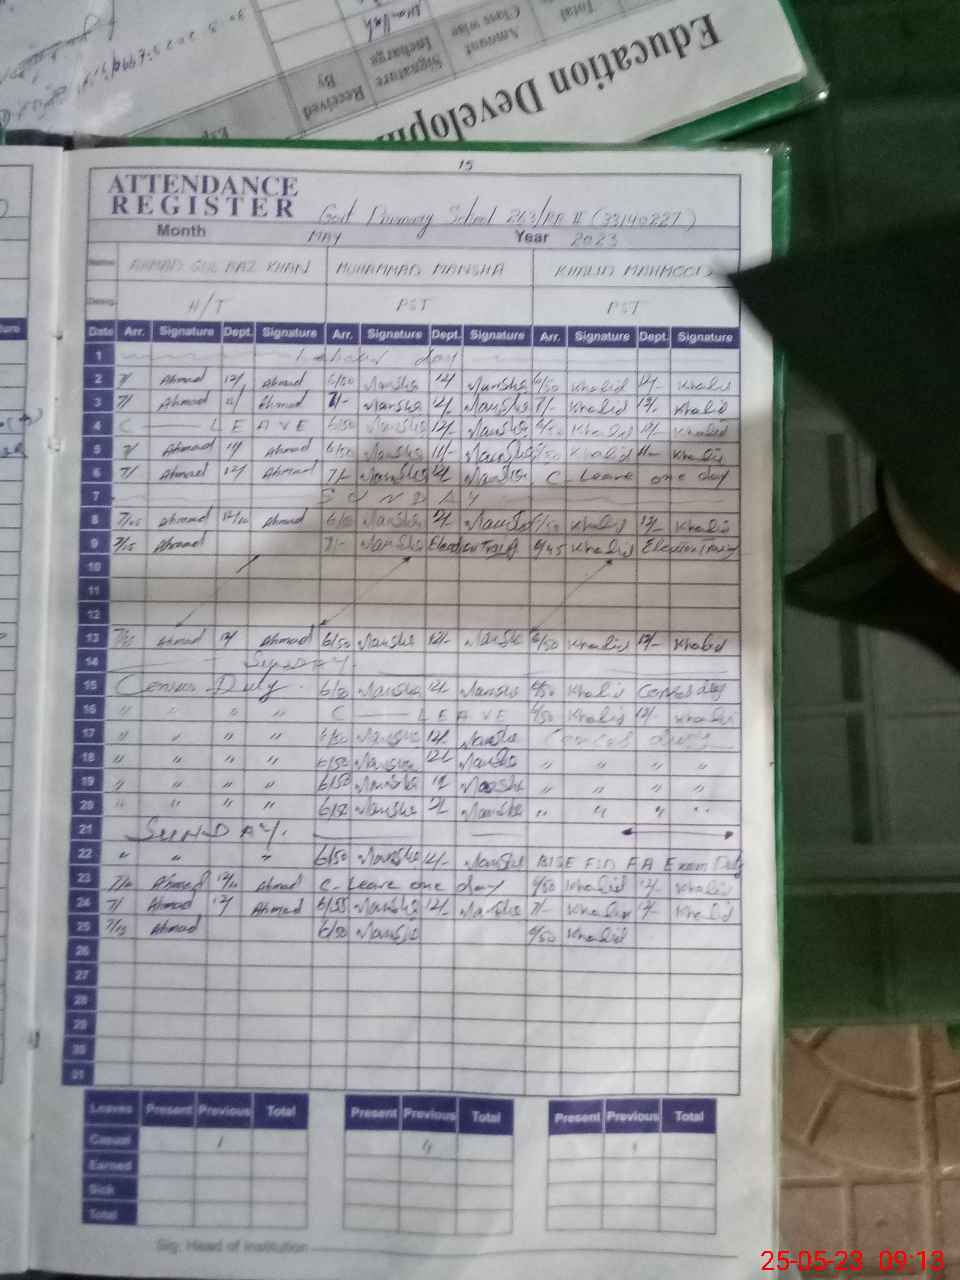 Education Develop
Total
Class wise
Amount
Signature
Incharge
Received
By
15
ATTENDANCE
REGISTER
Govt Primary School 263/RB II (33140227)
Month MAY Year 2023
Name AHMAD GUL RAZ KHAN MUHAMMAD MANSHA KHALID MAHMOOD
Desig. H/T PST PST
Date Arr. Signature Dept. Signature Arr. Signature Dept. Signature Arr. Signature Dept. Signature
1 Labour day
2 7/ Ahmad 12/ Ahmad 6/50 Mansha 12/ Mansha 6/50 Khalid 12/- Khalid
3 7/ Ahmad 11/ Ahmad 7/- Mansha 12/- Mansha 7/- Khalid 12/- Khalid
4 C LEAVE 6/50 Mansha 12/- Mansha 6/50 Khalid 12/- Khalid
5 7/ Ahmad 11/ Ahmad 6/50 Mansha 11/- Mansha 6/50 Khalid 11- Khalid
6 7/ Ahmad 12/ Ahmad 7/- Mansha 12/ Mansha C- Leave one day
7 SUNDAY
8 7/05 Ahmad 12/10 Ahmad 6/50 Mansha 12/ Mansha 6/50 Khalid 12/- Khalid
9 7/15 Ahmad 7/- Mansha Election 6/45 Khalid Election
10
11
12
13 Ahmad 12/ Ahmad 6/50 Mansha 12/- Mansha 6/50 Khalid 12/- Khalid
14 Sunday.
15 Census Duty 6/50 Mansha 12/ Mansha 6/50 Khalid
16 " " " " C LEAVE 6/50 Khalid 12/- Khalid
17 " " " " 6/50 Mansha 12/ Mansha Census duty
18 " " " " 6/50 Mansha 12/- Mansha " " " "
19 " " " " 6/50 Mansha 12 Mansha " " " "
20 " " " " 6/50 Mansha 12/ Mansha " " " "
21 SUNDAY.
22 " " " 6/50 Mansha 12/- Mansha BISE FSD FA Exam Duty
23 7/10 Ahmad 12/10 Ahmad C- Leave one day 6/50 Khalid 12/- Khalid
24 7/ Ahmad 12/ Ahmad 6/55 Mansha 12/- Mansha 7/- Khalid 12/- Khalid
25 7/15 Ahmad 6/50 Mansha 6/50 Khalid
26
27
28
29
30
31
Leaves Present Previous Total Present Previous Total Present Previous Total
Casual 1 4 1
Earned
Sick
Total
Sig. Head of Institution
25-05-23 09:13